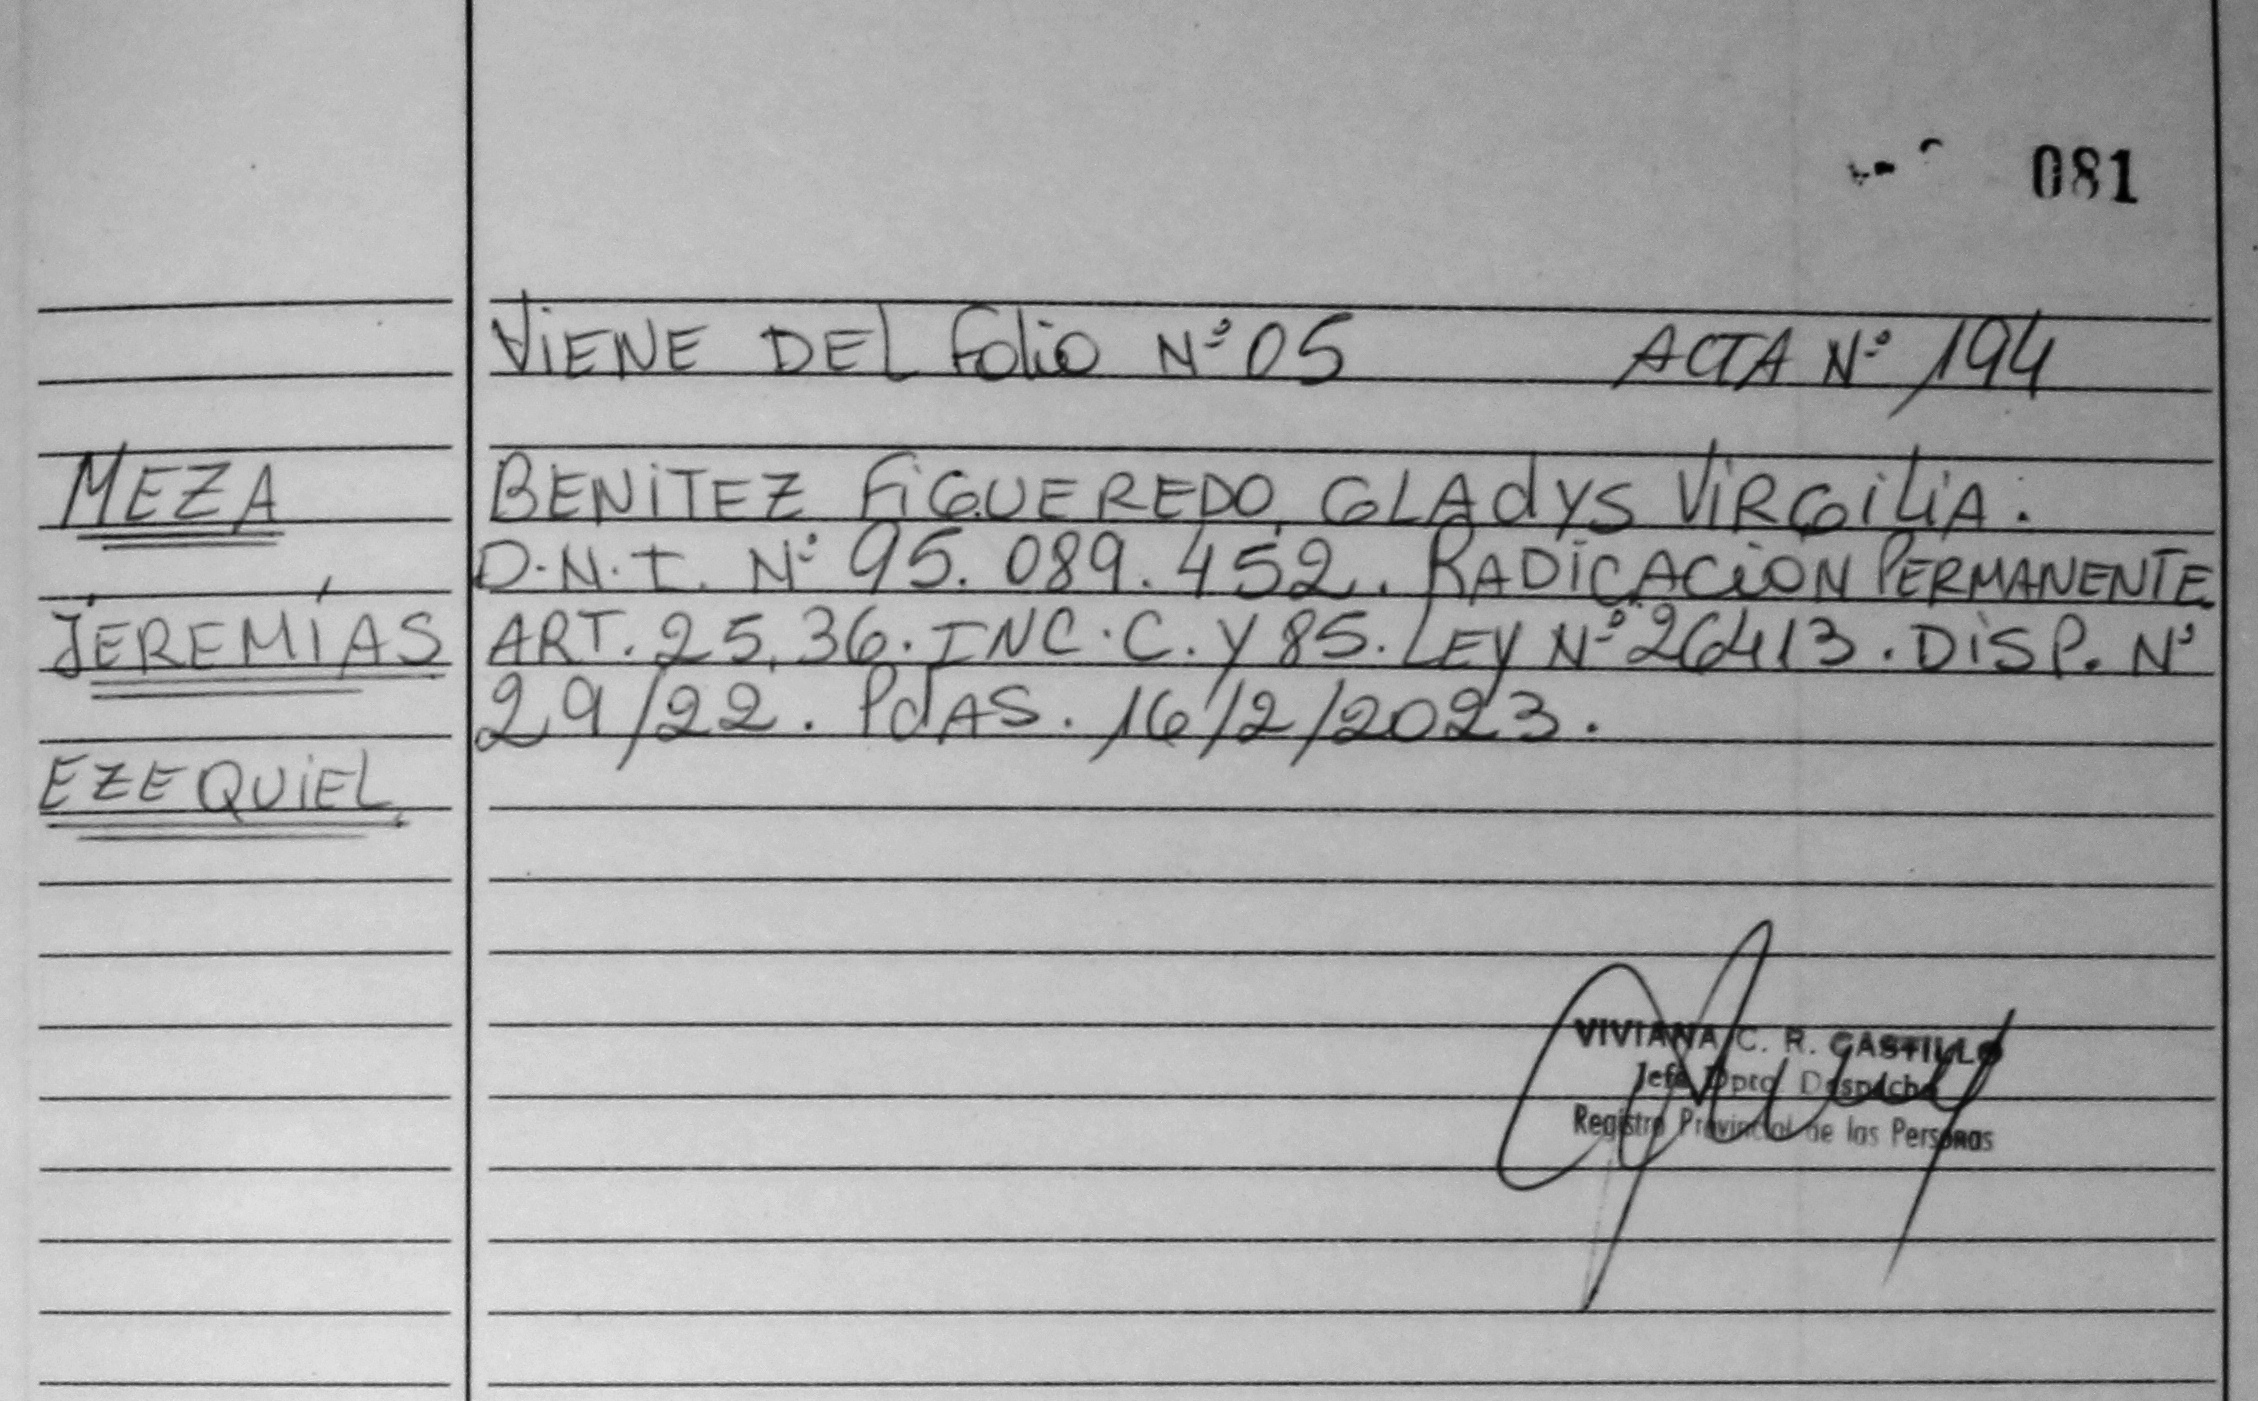 081
VIENE DEL Folio Nº 05 ACTA Nº 194
MEZA
JEREMÍAS
EZEQUIEL
BENITEZ FIGUEREDO, GLAdYS VIRGILIA.
D.N.I. Nº 95.089.452. RADICACIÓN PERMANENTE.
ART. 25, 36. INC. C. Y 85. LEY Nº 26413. DISP. Nº
29/22. PdAS. 16/2/2023.
VIVIANA C. R. CASTILLO
Jefe Dpto. Despacho
Registro Provincial de las Personas